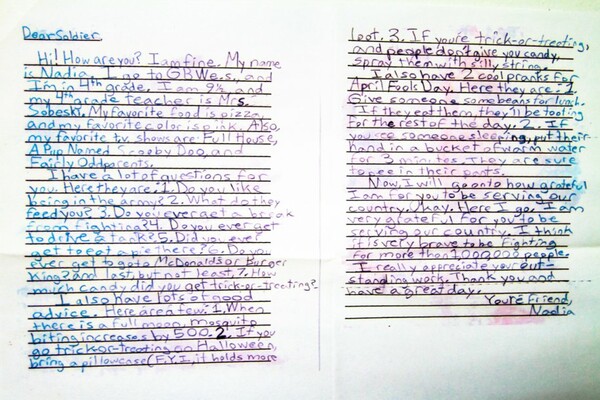 Dear Soldier,
Hi! How are you? I am fine. My name
is Nadia. I go to GBW.e.s, and
I'm in 4th grade. I am 9½, and
my 4th grade teacher is Mrs.
Sobeski. My favorite food is pizza,
and my favorite color is pink. Also,
my favorite tv shows are Full House,
A Pup Named Scooby Doo, and
Fairly Oddparents.
I have a lot of questions for
you. Here they are: 1. Do you like
being in the army? 2. What do they
feed you? 3. Do you ever get a break
from fighting? 4. Do you ever get
to drive a tank? 5. Did you ever
get to eat a pie there? 6. Do you
ever get to go to McDonalds or Burger
King? And last, but not least, 7. How
much candy did you get trick-or-treating?
I also have lots of good
advice. Here are a few: 1. When
there is a full moon, mosquito
biting increases by 500. 2. If you
go trick-or-treating on Halloween,
bring a pillowcase (F.Y.I, it holds more
loot. 3. If you're trick-or-treating,
and people don't give you candy,
spray them with silly string.
I also have 2 cool pranks for
April Fools Day. Here they are: 1.
Give someone some beans for lunch.
If they eat them, they'll be tooting
for the rest of the day. 2. If
you see someone sleeping, put their
hand in a bucket of warm water
for 3 minutes. They are sure
to pee in their pants.
Now, I will go onto how grateful
I am for you to be serving our
country. Okay. Here I go. I am
very grateful for you to be
serving our country. I think
it is very brave to be fighting
for more than 1,000,000 people.
I really appreciate your out-
standing work. Thank you and
have a great day.
You're friend,
Nadia